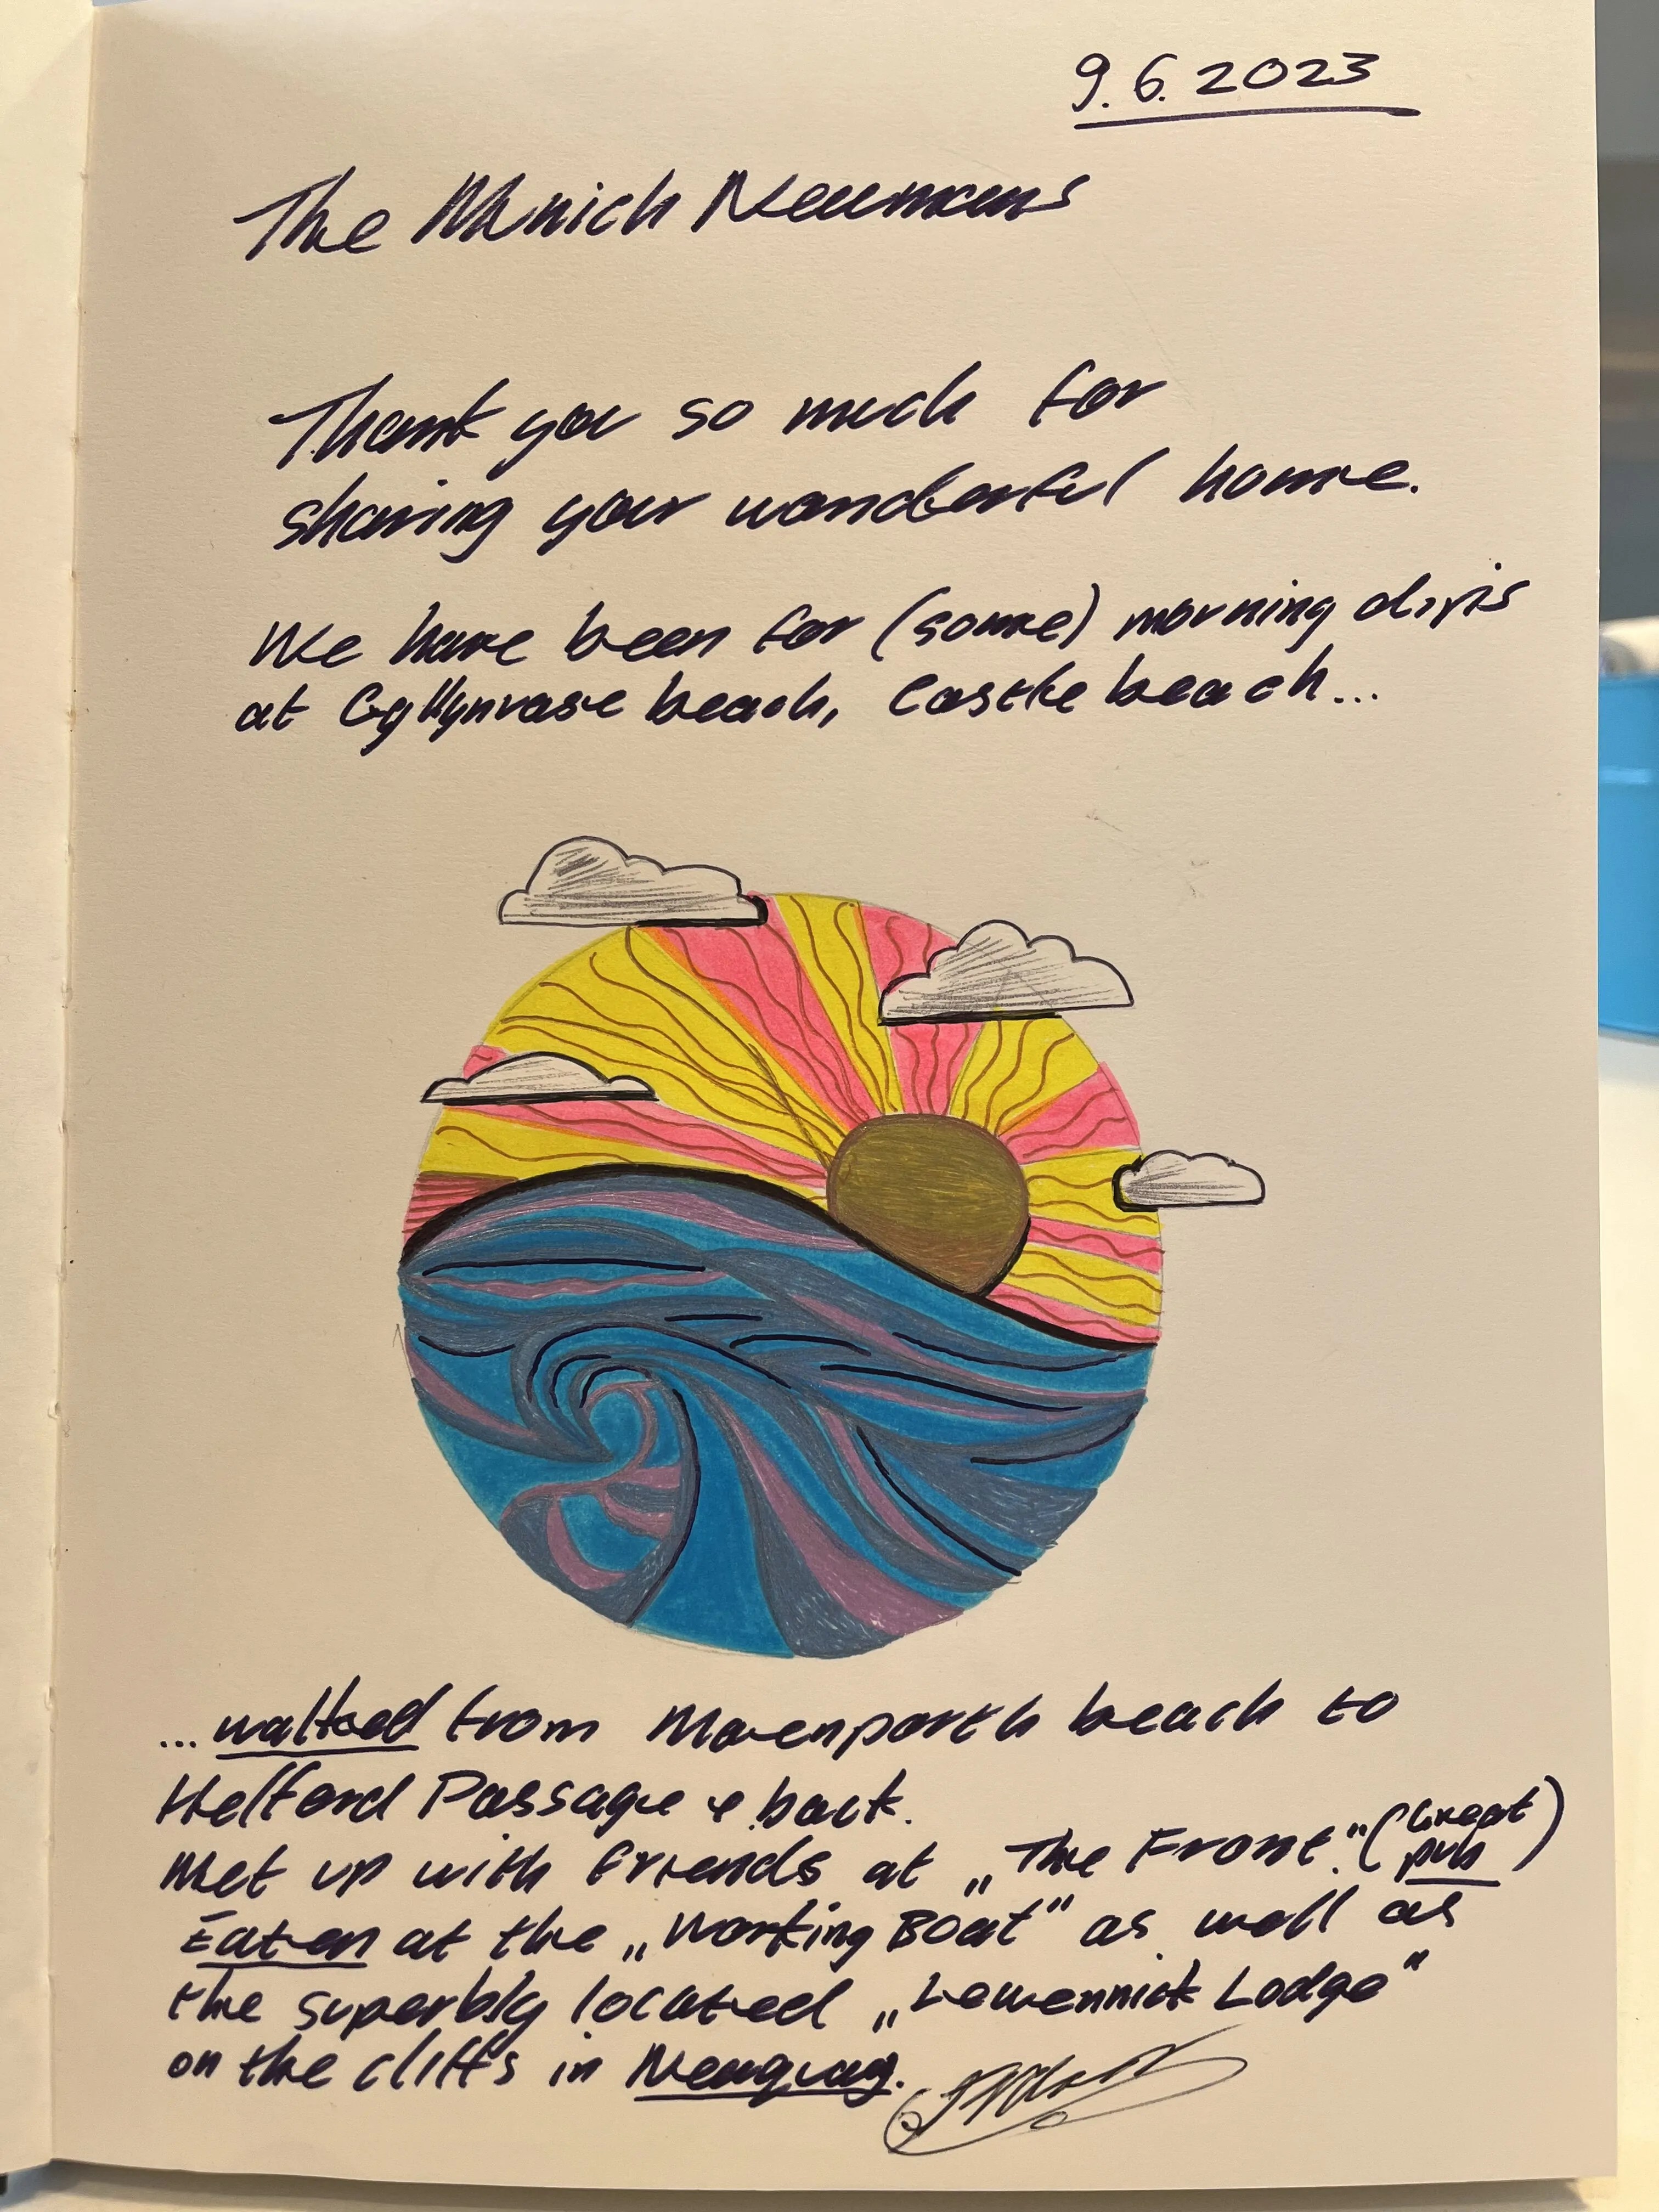 9.6.2023
The Munich Neumanns
Thank you so much for
sharing your wonderful home.
We have been for (some) morning dips
at Gyllynvase beach, Castle beach...
...walked from Maenporth beach to
Helford Passage & back.
Met up with friends at „The Front." (Great pub)
Eaten at the „Working Boat" as well as
the superbly located „Lewennick Lodge"
on the cliffs in Newquay.